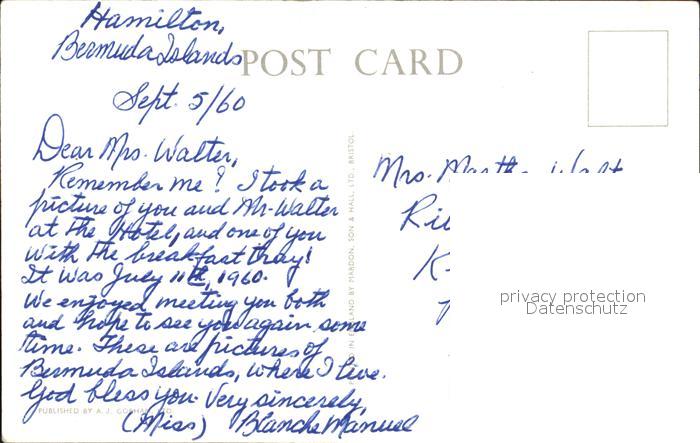 Hamilton,
Bermuda Islands
POST CARD
Sept. 5/60
Dear Mrs. Walter,
Remember me? I took a
picture of you and Mr. Walter
at the Hotel, and one of you
with the breakfast tray!
It was July 11th, 1960.
We enjoyed meeting you both
and hope to see you again some
time. These are pictures of
Bermuda Islands, where I live.
God bless you. Very sincerely,
(Miss) Blanche Manuel
PUBLISHED BY A. J. GORHAM, LTD.
IN ENGLAND BY MARDON, SON & HALL, LTD., BRISTOL
Mrs.
privacy protection
Datenschutz